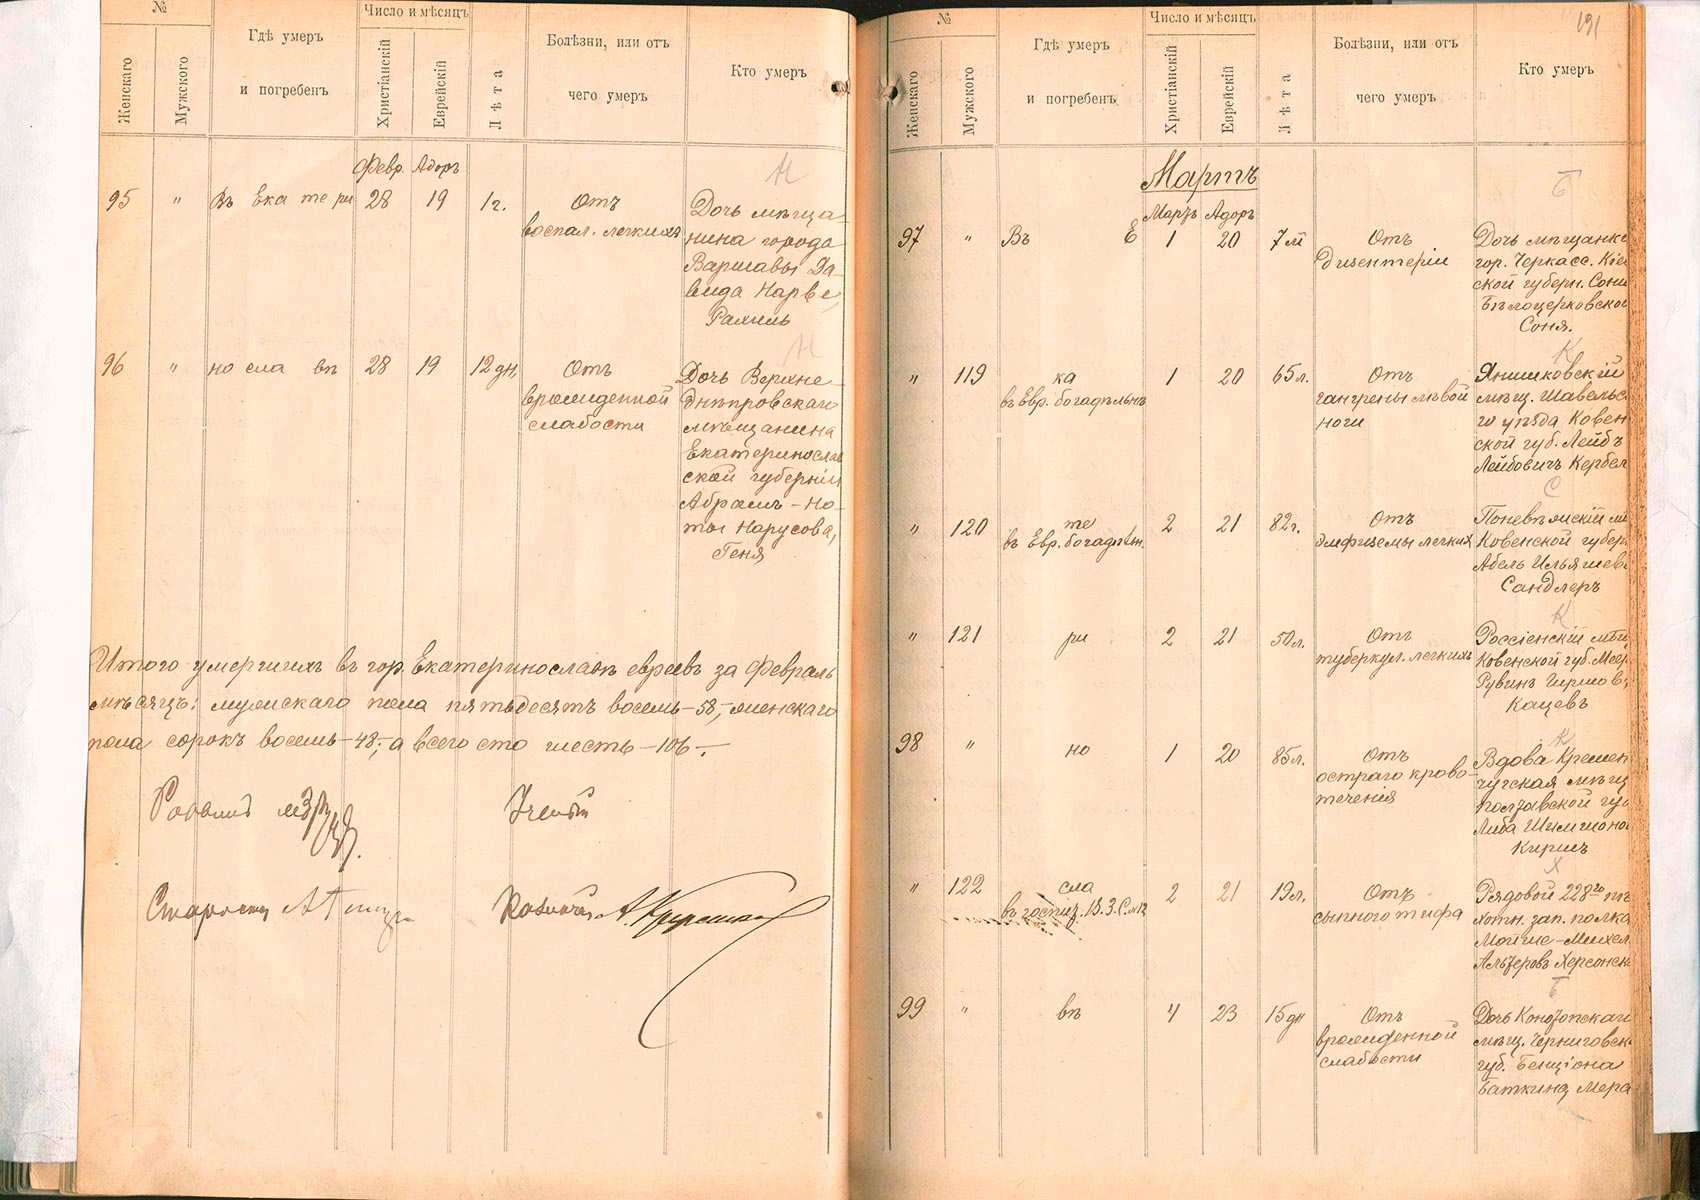 №
Женскаго
Мужского
Гдѣ умеръ
и погребенъ
Число и мѣсяцъ
Христіанскій
Еврейскій
Лѣта
Болѣзни, или отъ
чего умеръ
Кто умеръ
Февр. Адоръ
Н
95 " Въ Екатери 28 19 1 г.
Отъ
воспал. легкихъ
Дочь мѣща-
нина города
Варшавы Да-
вида Нарве,
Рахиль
Н
96 " носла вѣ 28 19 12 дн.
Отъ
врожденной
слабости
Дочь Верхне-
днѣпровскаго
мѣщанина
Екатеринослав
ской губерніи
Абрамъ-Но-
ты Нарусова,
Геня
Итого умершихъ въ гор. Екатеринославѣ евреевъ за Февраль
мѣсяцъ: мужскаго пола пятьдесятъ восемь -58-, женскаго
пола сорокъ восемь -48-, а всего сто шесть -106-.
Раввинъ
Ученый
Староста
Казначей
191
№
Женскаго
Мужского
Гдѣ умеръ
и погребенъ
Число и мѣсяцъ
Христіанскій
Еврейскій
Лѣта
Болѣзни, или отъ
чего умеръ
Кто умеръ
Мартъ
Мартъ Адоръ
Б
97 " Въ Е 1 20 7 м
Отъ
дизентеріи
Дочь мѣщанк
гор. Черкасс. Кіев
ской губерн. Сони
Бѣлоцерковской
Соня.
К
" 119 ка 1 20 65 л.
въ Евр. богадѣльнѣ
Отъ
гангрены лѣвой
ноги
Янишковскій
мѣщ. Шавельс
го уѣзда Ковен
ской губ. Лейбъ
Лейбовичъ Кербел
С
" 120 те 2 21 82 г.
въ Евр. богадѣльн.
Отъ
эмфиземы легкихъ
Поневѣжскій мѣ
Ковенской губер
Абель Ильяшев
Сандлеръ
К
" 121 ри 2 21 50 л.
Отъ
туберкул. легкихъ
Россіенскій мѣщ
Ковенской губ. Меер
Рувинъ Гиршов
Кацевъ
К
98 " но 1 20 85 л.
Отъ
остраго крово-
теченія
Вдова Кремен
чугская мѣщ
Полтавской гу
Либа Шимшоно
Киришъ
Х
" 122 сла 2 21 19 л.
въ госпит. В. З. С. №12
Отъ
сыпного тифа
Рядовой 228го пѣ
хотн. зап. полка
Мойше-Михел
Альтеровъ Херсонск
Б
99 " вѣ 4 23 15 дн
Отъ
врожденной
слабости
Дочь Конотопскаго
мѣщ. Черниговск
губ. Бенціона
Баткина, Мера